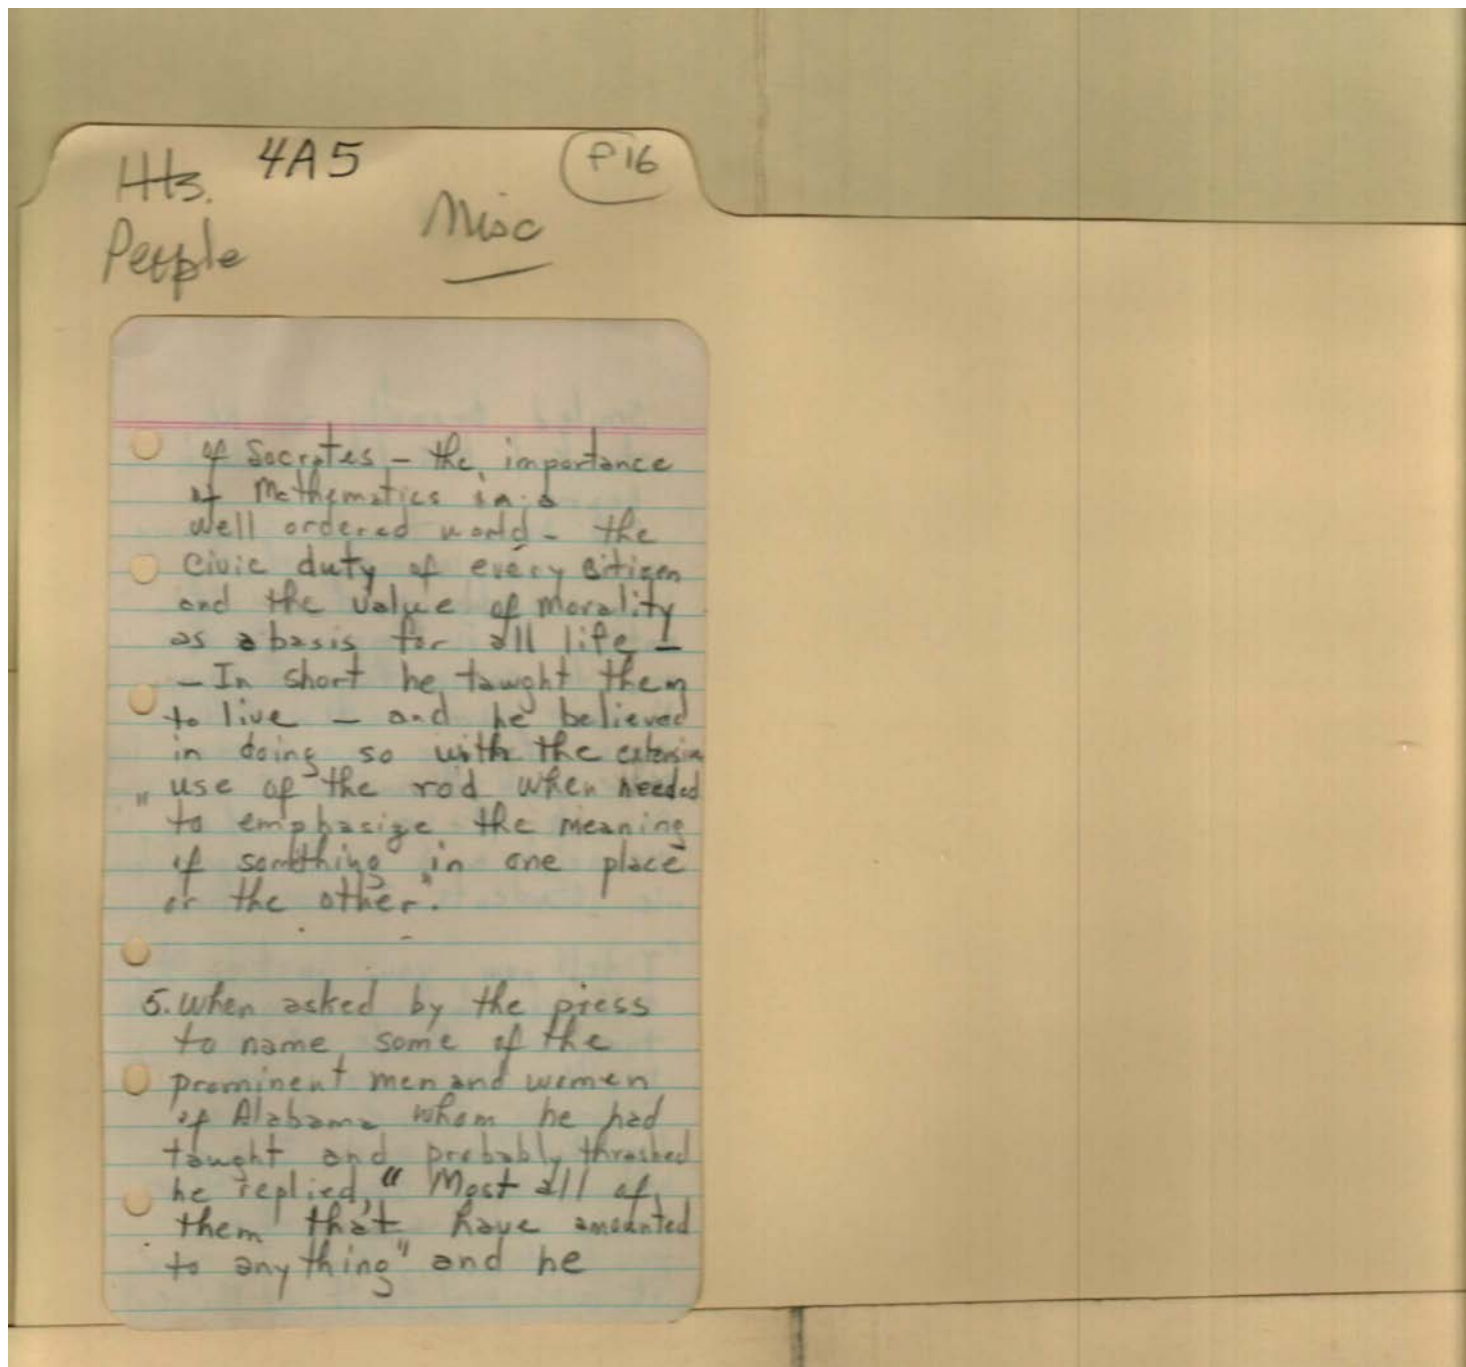 4A5
P16
Hts.
People
Misc
of Socrates – the importance
of Mathematics in a
well ordered world – the
Civic duty of every citizen
and the value of morality
as a basis for all life –
– In short he taught them
to live – and he believed
in doing so with the extensive
use of the rod when needed
"to emphasize the meaning
of something in one place
or the other".
5. When asked by the press
to name some of the
prominent men and women
of Alabama whom he had
taught and probably thrashed
he replied, "Most all of
them that have amounted
to anything" and he